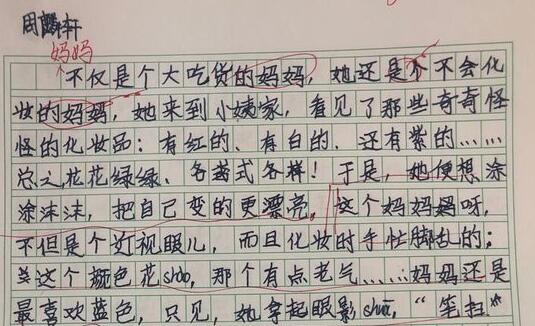 周麟轩
妈妈
不仅是个大吃货的妈妈，她还是个不会化
妆的妈妈，她来到小姨家，看见了那些奇奇怪
怪的化妆品：有红的、有白的、还有紫的……
总之花花绿绿、各式各样！于是，她便想涂
涂沫沫，把自己变的更漂亮，这个妈妈妈呀，
不但是个近视眼儿，而且化妆时手忙脚乱的；
这个颜色花shào，那个有点老气……妈妈还是
最喜欢蓝色，只见，她拿起眼影shuā，“笔扫”